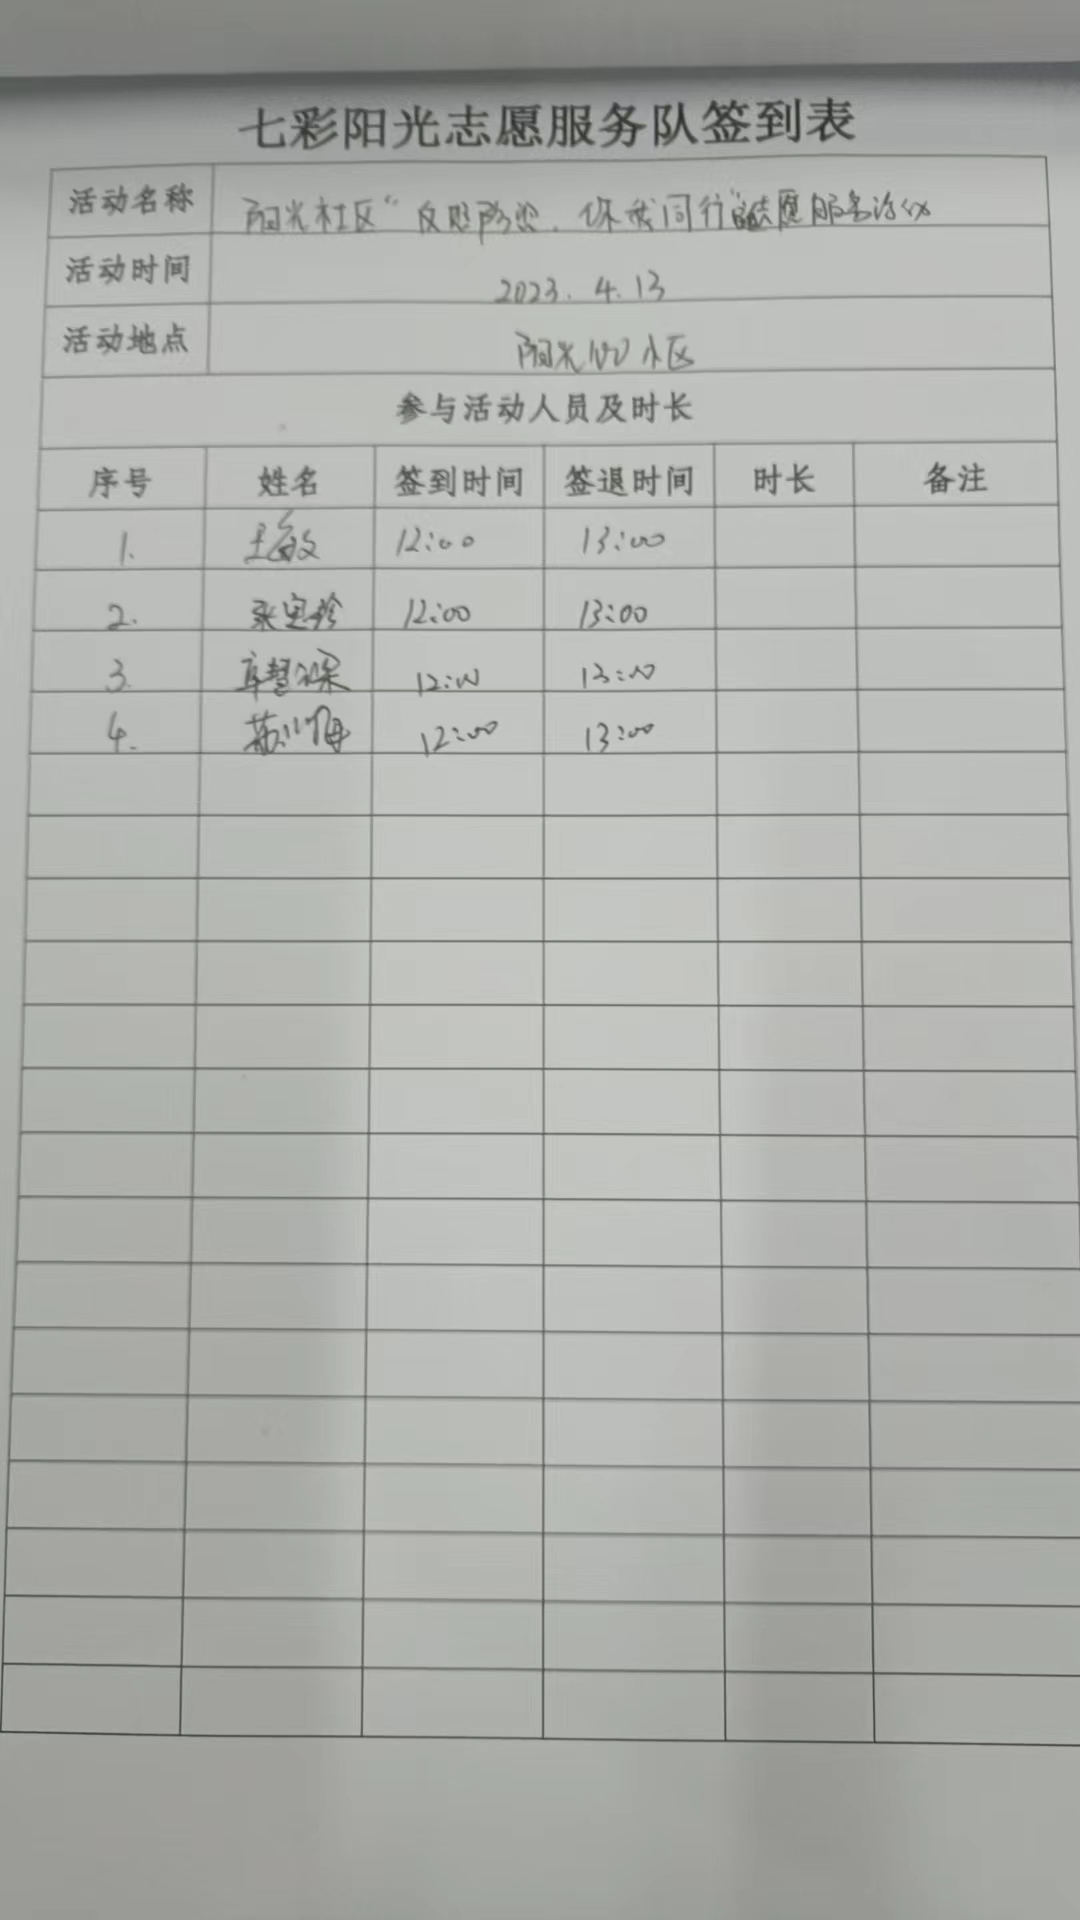 七彩阳光志愿服务队签到表
活动名称 阳光社区" 你我同行"志愿服务活动
活动时间 2023.4.13
活动地点 阳光100小区
参与活动人员及时长
序号 姓名 签到时间 签退时间 时长 备注
1. 王敏 12:00 13:00
2. 12:00 13:00
3. 12:00 13:00
4. 12:00 13:00